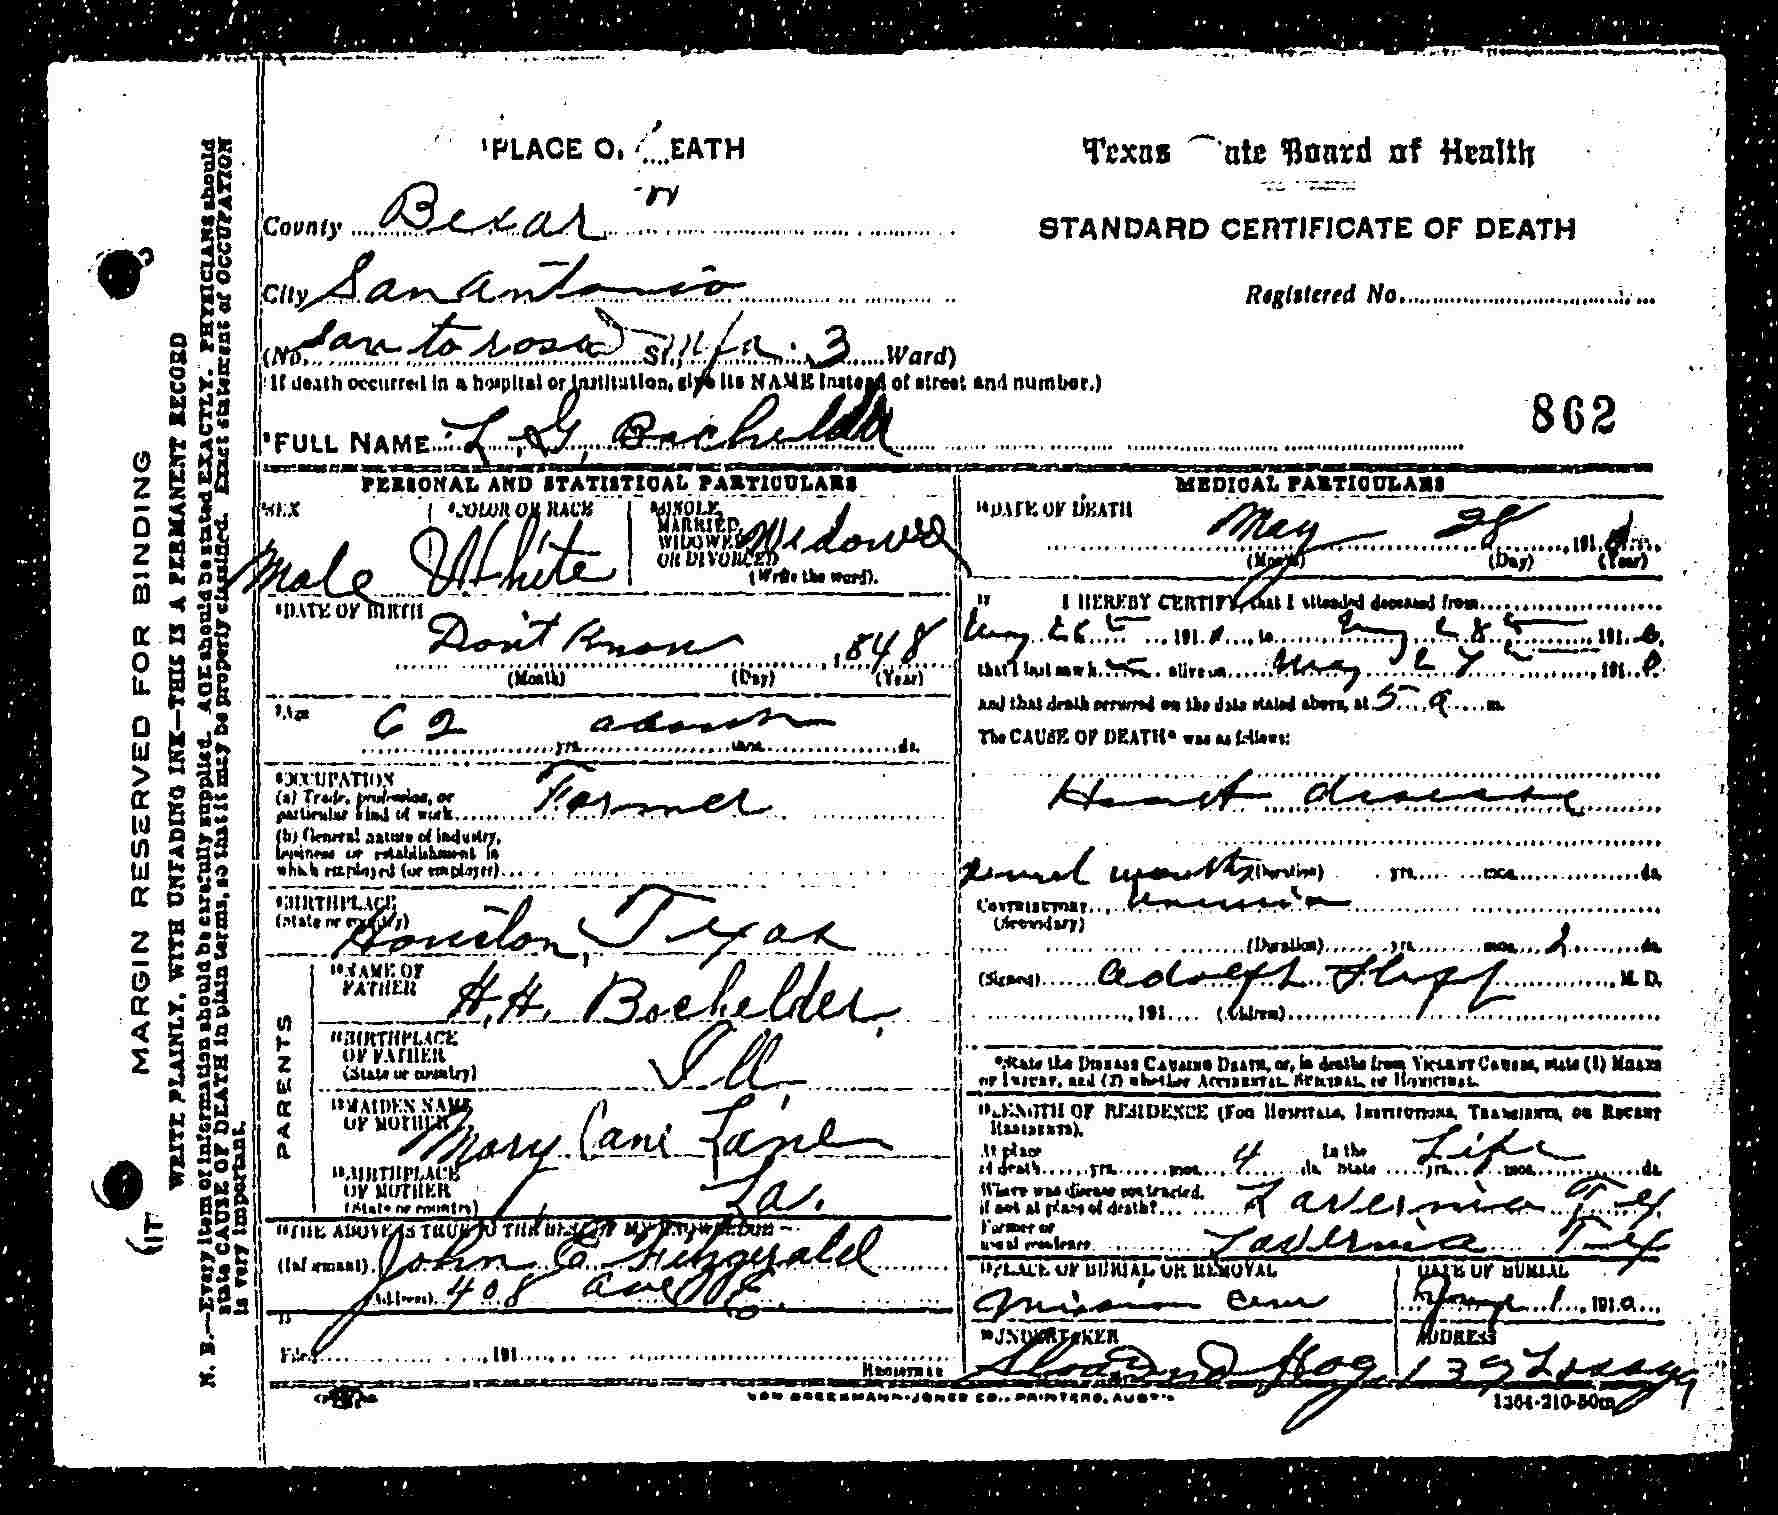 MARGIN RESERVED FOR BINDING
WRITE PLAINLY, WITH UNFADING INK—THIS IS A PERMANENT RECORD
N. B.—Every item of information should be carefully supplied. AGE should be stated EXACTLY. PHYSICIANS should
state CAUSE OF DEATH in plain terms, so that it may be properly classified. Exact statement of OCCUPATION
is very important.
PLACE O. EATH
County Bexar
City San Antonio
(No. Santa rosa St., Infa. 3 Ward)
(If death occurred in a hospital or institution, give its NAME instead of street and number.)
FULL NAME L. G. Bachelder
Texas ate Board of Health
STANDARD CERTIFICATE OF DEATH
Registered No.
862
PERSONAL AND STATISTICAL PARTICULARS
SEX
Male
COLOR OR RACE
White
SINGLE, MARRIED, WIDOWED OR DIVORCED
(Write the word).
Widowed
DATE OF BIRTH
Don't Know 1848
(Month) (Day) (Year)
AGE
62 yrs. mos. ds.
OCCUPATION
(a) Trade, profession, or
particular kind of work Farmer
(b) General nature of industry,
business or establishment in
which employed (or employer)
BIRTHPLACE
(State or country)
Houston, Texas
PARENTS
NAME OF FATHER
H. H. Bachelder
BIRTHPLACE OF FATHER
(State or country)
Ill.
MAIDEN NAME OF MOTHER
Mary Cane Laine
BIRTHPLACE OF MOTHER
(State or country)
La.
THE ABOVE IS TRUE TO THE BEST OF MY KNOWLEDGE
(Informant) John C Fitzgerald
(Address) 408 Ave E.
Filed 191
Registrar
MEDICAL PARTICULARS
DATE OF DEATH
May 28, 1910
(Month) (Day) (Year)
I HEREBY CERTIFY, that I attended deceased from
May 191 , to May 28 1910.
that I last saw h alive on May 27 1910
and that death occurred on the date stated above, at 5 a m.
The CAUSE OF DEATH* was as follows:
Heart disease
several months (Duration) yrs. mos. ds.
Contributory
(Secondary)
(Duration) yrs. mos. 2 ds.
(Signed) Adolph M. D.
, 191 (Address)
*State the Disease Causing Death, or, in deaths from Violent Causes, state (1) Means
of Injury, and (2) whether Accidental, Suicidal, or Homicidal.
LENGTH OF RESIDENCE (For Hospitals, Institutions, Transients, or Recent
Residents).
At place of death yrs. mos. 4 ds. In the State Life yrs. mos. ds.
Where was disease contracted,
if not at place of death? Lavernia Tex.
Former or
usual residence Lavernia Tex
PLACE OF BURIAL OR REMOVAL
Mission Cem
DATE OF BURIAL
1, 1910
UNDERTAKER
ADDRESS
139
VON BOECKMANN-JONES CO., PRINTERS, AUSTIN
1364-210-50m